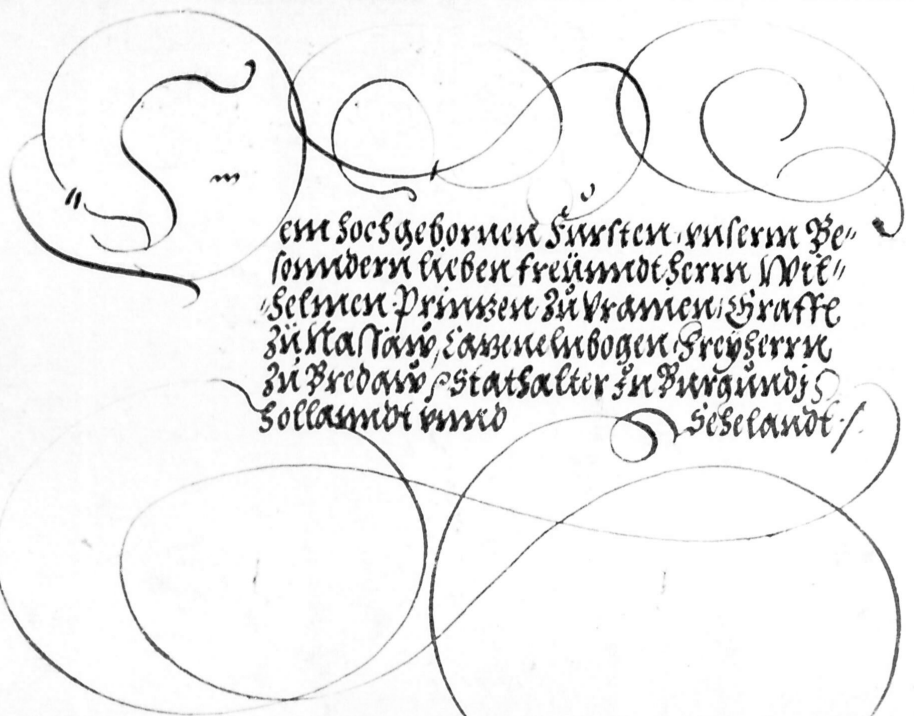 Dem hochgebornen Fürsten, vnserm Be=
sonndern lieben freünndt herrn Wil=
=helmen Printzen Zu Vranien, Graffe
Zu Nassaw, Catzenelnbogen, Freyherrn
Zu Bredaw, Stathalter Jn Burgundj
Hollanndt vnnd Sehelandt ./.